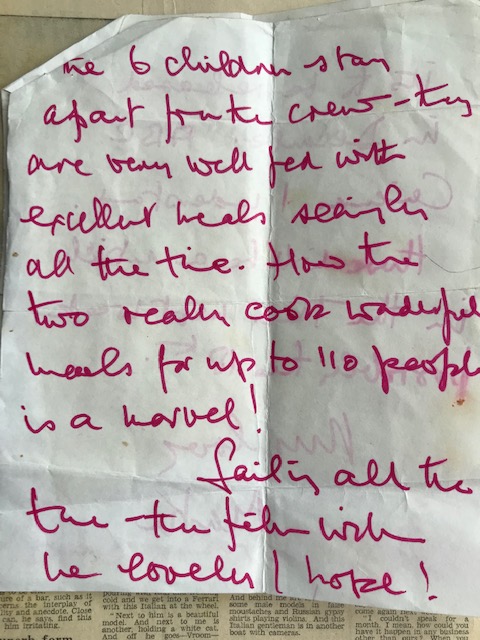 The 6 children stay
apart from the crew - they
are very well fed with
excellent meals seemingly
all the time. How the
two really cook wonderful
meals for up to 110 people
is a marvel!
Sailing all the
time - the film will
be lovely I hope!
ure of a bar, such as it
erns the interplay of
ity and anecdote. Close
can, he says, find this
him irritating.
cold and we get into a Ferrari
with this Italian at the wheel.
"Next to him is a beautiful
model. And next to me is
another, holding a white cat.
And off he goes—Vroom—
And behind me
some male models in false
moustaches and Russian gypsy
shirts playing violins. And this
Italian gentleman is in another
boat with cameras.
come again next
"I couldn't speak for a
month. I mean, how could you
have it happen in any business
other than yours? When you